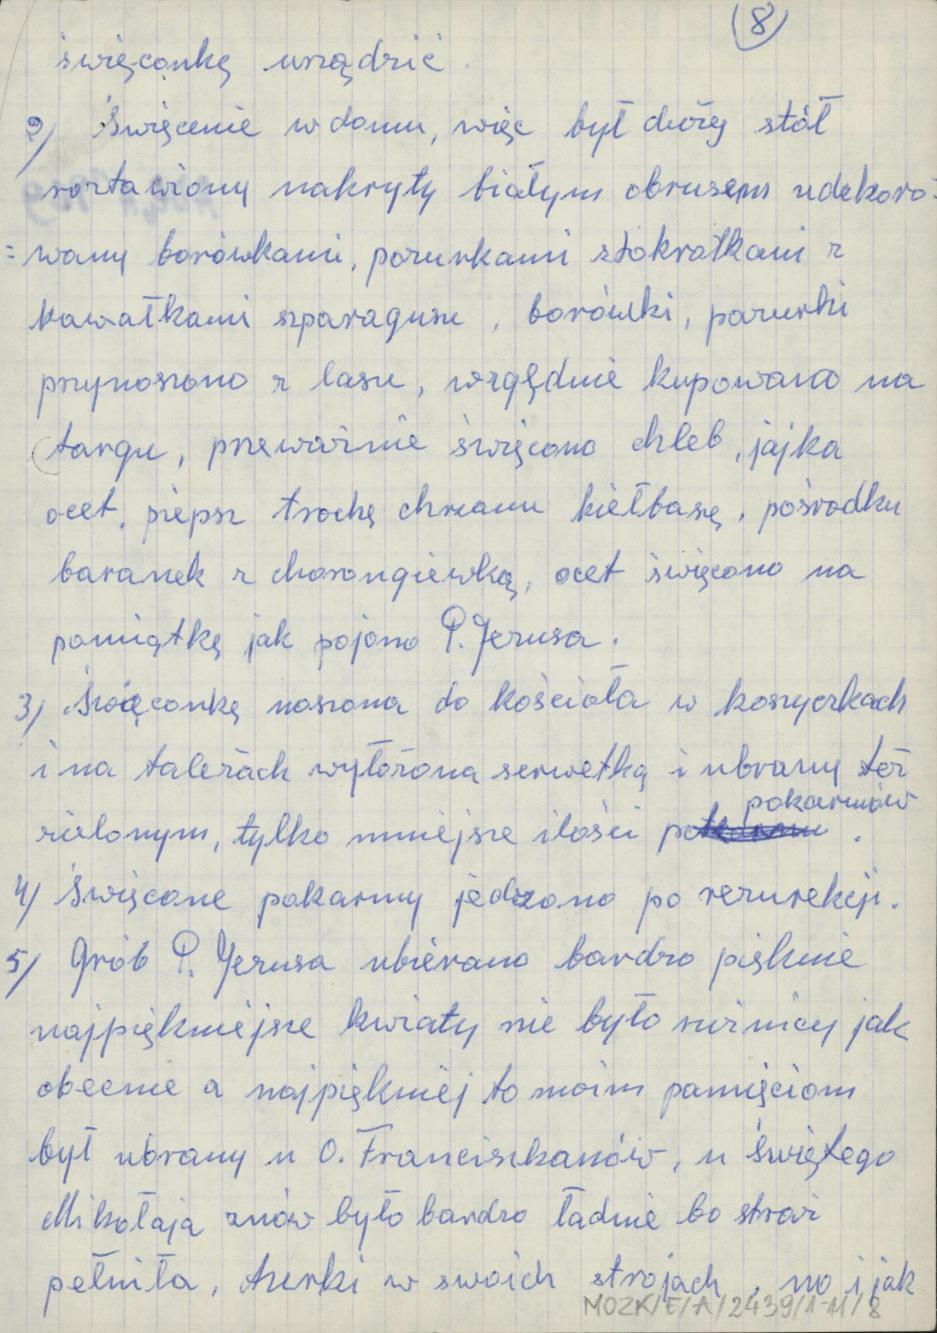 8
święconkę urządzić.
2) Święcenie w domu, więc był duży stół
roztawiony nakryty białym obrusem udekoro=
=wany borówkami, pazurkami stokrotkami z
kawałkami szparagusu, borówki, pazurki
przynoszono z lasu, względnie kupowano na
targu, przeważnie święcono chleb, jajka
ocet, pieprz trochę chrzanu kiełbasę, pośrodku
baranek z chorongiewką, ocet święcono na
pamiątkę jak pojono P. Jezusa.
3) Święconkę noszona do kościoła w koszyczkach
i na talerzach wyłożona serwetką i ubrany też
zielonym, tylko mniejsze ilości pokarmów.
4) Święcone pokarmy jedzono po rezurekcji.
5) Grób P. Jezusa ubierano bardzo pięknie
najpiękniejsze kwiaty nie było zniżnicy jak
obecnie a najpiękniej to moim pamięciom
był ubrany u O. Franciszkanów, u Świętego
Mikołaja znów było bardzo ładnie bo straż
pełniła, turki w swoich strojach, no i jak
MOZK/E/A/2439/1-11/8